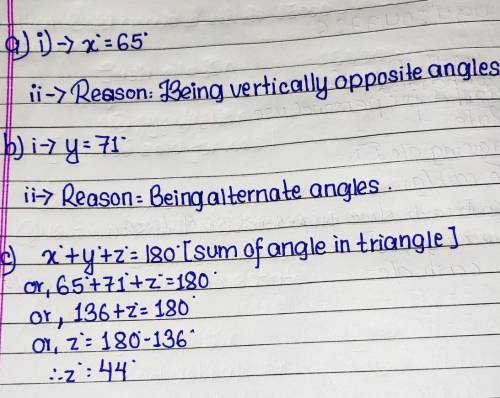 a) i) → x° = 65°
ii → Reason: Being vertically opposite angles
b) i → y = 71°
ii → Reason = Being alternate angles.
c) x° + y° + z° = 180° [sum of angle in triangle]
or, 65° + 71° + z° = 180°
or, 136 + z° = 180°
or, z° = 180° - 136°
∴ z° = 44°